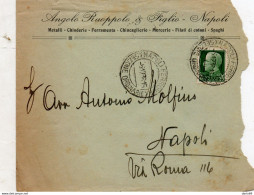 Angelo Ruoppolo & Figlio - Napoli
Metalli - Chinderia - Ferramenta - Chincaglieria - Mercerie - Filati di canapi - Spaghi
Avv Antonio Molfino
Napoli
Via Roma 116